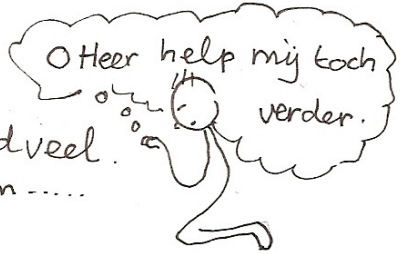 O Heer help mij toch
verder.
dveel.
n.....